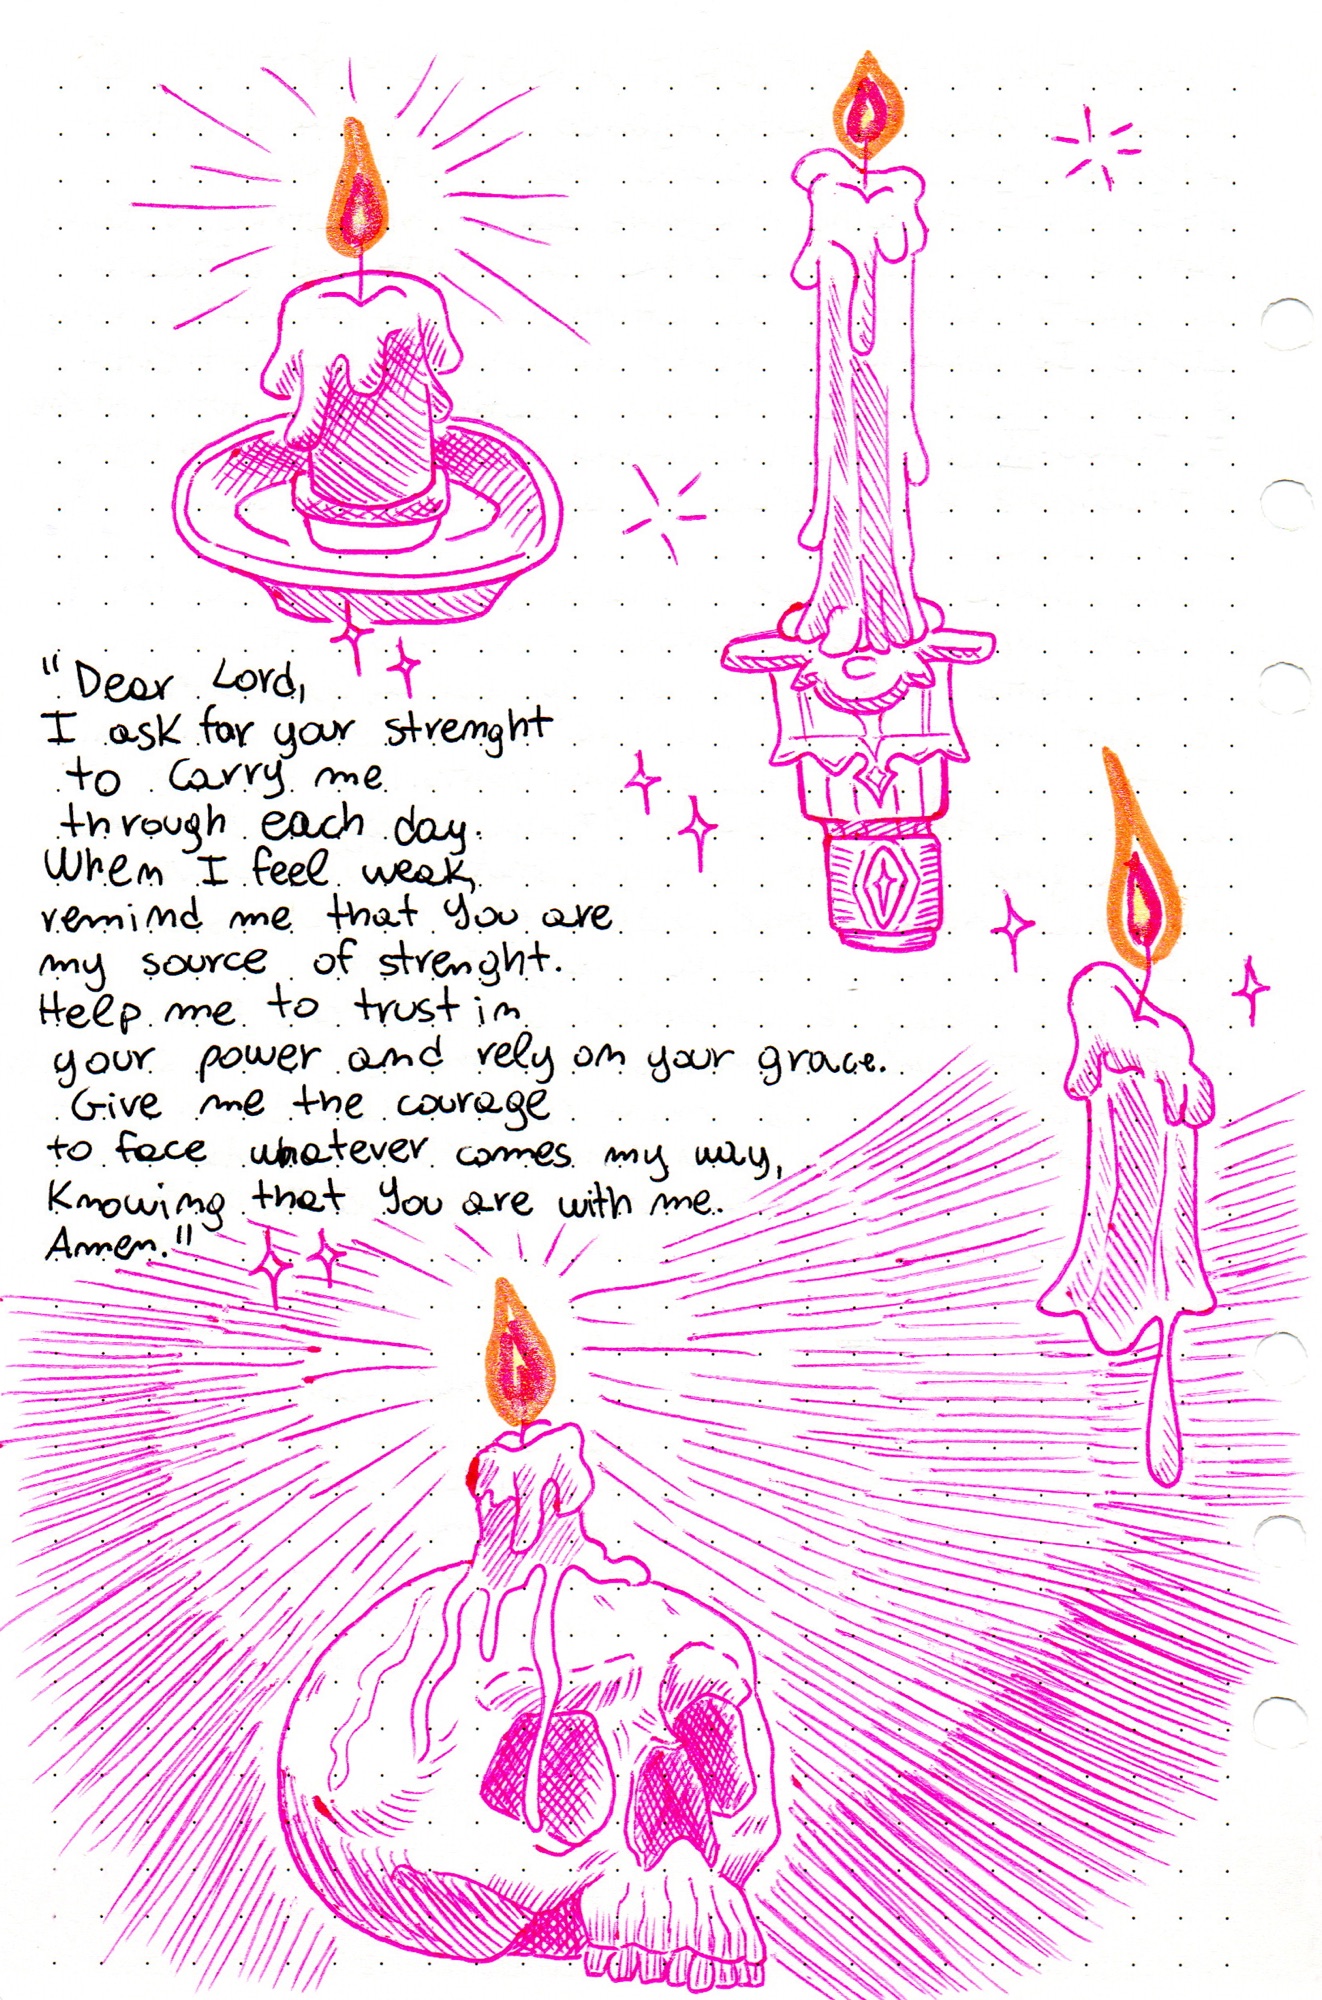 "Dear Lord,
I ask for your strenght
to carry me
through each day.
When I feel weak,
remind me that You are
my source of strenght.
Help me to trust in
your power and rely on your grace.
Give me the courage
to face whatever comes my way,
Knowing that You are with me.
Amen."